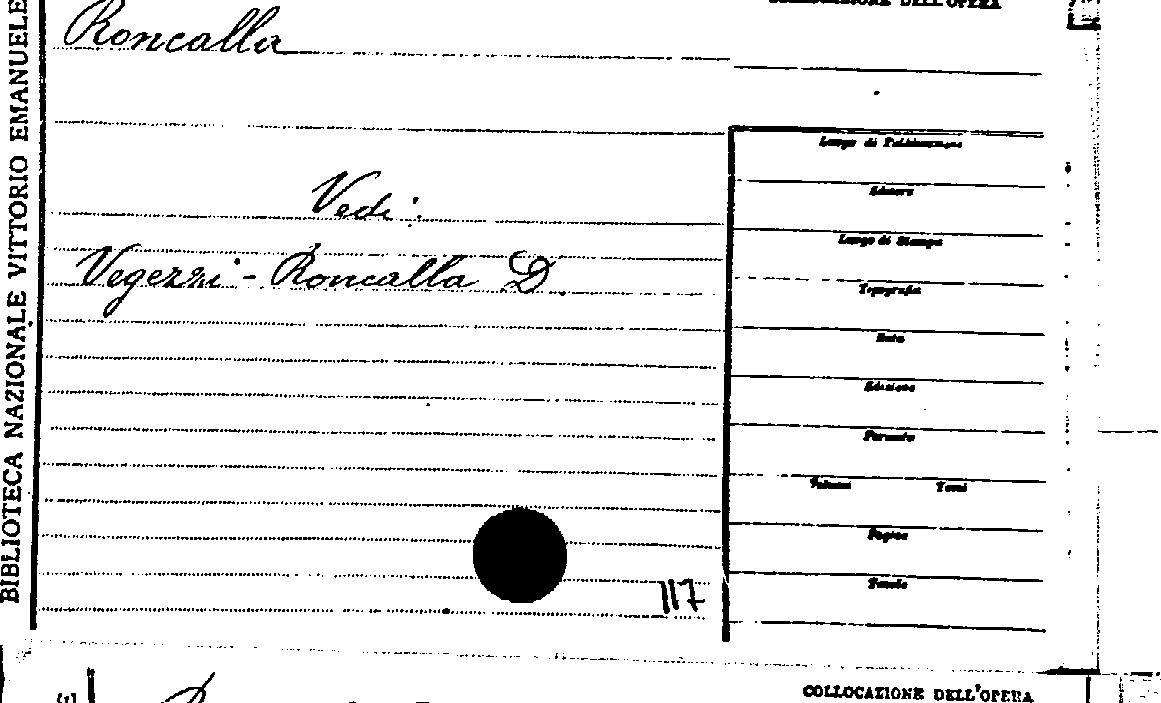 COLLOCAZIONE DELL'OPERA
BIBLIOTECA NAZIONALE VITTORIO EMANUELE
Roncalla
Vedi:
Vegezzi-Roncalla D.
Luogo di Pubblicazione
Editore
Luogo di Stampa
Tipografia
Data
Edizione
Formato
Volumi Tomi
Pagine
Tavole
117
COLLOCAZIONE DELL'OPERA